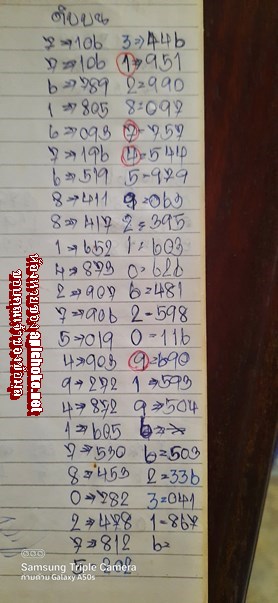 ดิบบน
7→106 3→446
7→106 1→951
6→789 2=990
1→805 8=097
6→093 7=757
7→196 4=544
6→519 5=929
8→411 9=063
8→417 2=395
1→652 1=603
4→873 0=626
2→907 6=481
7→906 2=598
5→019 0=116
4→903 9=690
9→272 1=593
4→872 9→504
1→665 6→
7→530 6=503
8→453 2=336
0→782 3=041
2→478 1=867
7→812 6=
202
ห้องหวยซอง aplehote.net
Samsung Triple Camera
ถ่ายด้วย Galaxy A50s